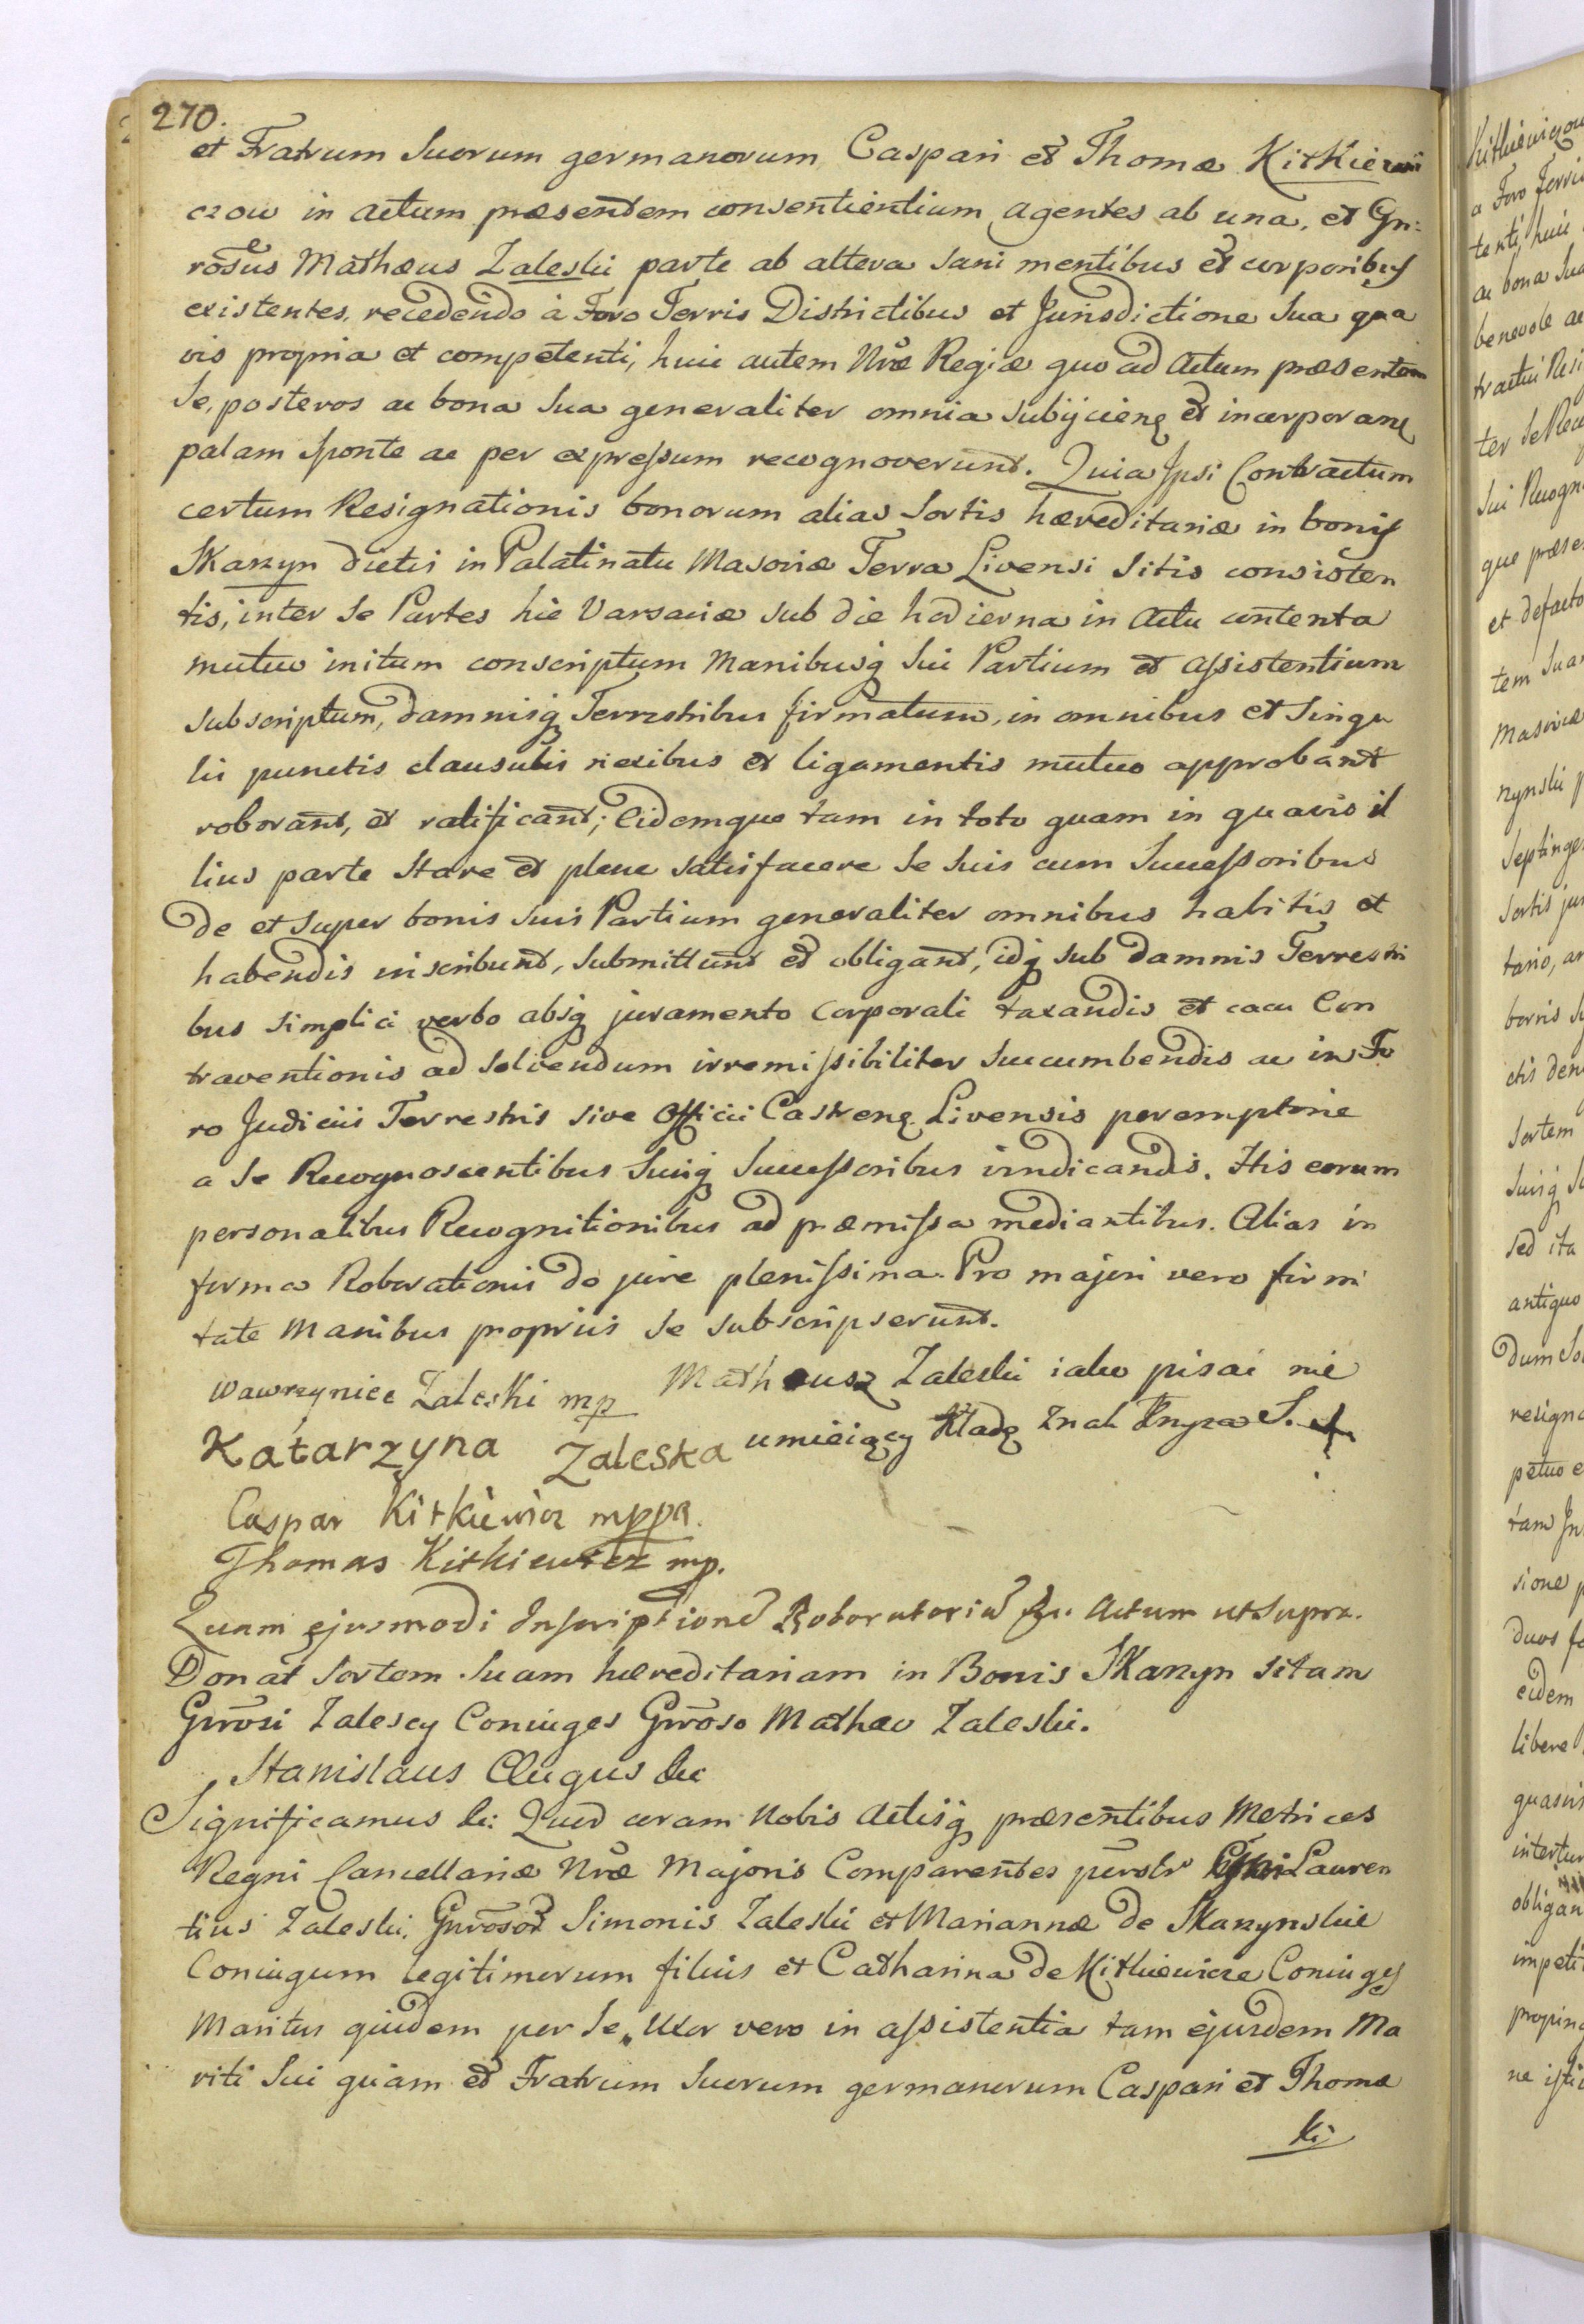 270.
et Fratrum Suorum germanorum Caspari et Thomæ Kitkiewi
czow in actum præsentem consentientium agentes ab una, et Gn:
rosus Mathæus Zaleski parte ab altera sani mentibus et corporibus
existentes, recedendo à Foro Terris Districtibus et Jurisdictione Sua qua
vis propria et competenti, huic autem Nræ Regiæ quo ad Actum præsentem
Se, posteros ac bona Sua generaliter omnia Subijcienq et incorporanq
palam Sponte ac per expressum recognoverunt. Quia Ipsi Contractum
certum Resignationis bonorum alias Sortis hæreditariæ in bonis
Skarzyn dictis in Palatinatu Masoviæ Terra Livensi Sitis consisten
tis, inter Se Partes hic Varsaviæ sub die hodierna in Actu contenta
mutuo initum conscriptum Manibusq Sui Partium et Assistentium
subscriptum, damnisq Terrestribus firmatum, in omnibus et Singu
lis punctis clausulis nexibus et ligamentis mutuo approbant
roborant, et ratificant; Eidemque tam in toto quam in quavis il
lius parte Stare et plene satisfacere Se Suis cum Successoribus
de et Super bonis Suis Partium generaliter omnibus habitis et
habendis inscribunt, Submittunt et obligant, idq Sub damnis Terrestri
bus Simplici verbo absq juramento Corporali taxandis et casu Con
traventionis ad Solvendum irremissibiliter Succumbendis ac in Fo
ro Judicii Terrestris Sive Officii Castrenq Livensis peremptorie
a Se Recognoscentibus Suisq Successoribus vindicandis. His eorum
personalibus Recognitionibus ad præmissa mediantibus. Alias in
forma Roborationis do jure plenissima. Pro majori vero firmi
tate Manibus propriis Se Subscripserunt.
Wawrzyniec Zaleski mp Matheusz Zaleski iako pisać nie
Katarzyna Zaleska umieiący kładę Znak Krzyza S. +
Caspar Kitkiewicz mppa.
Thomas Kitkiewicz mp.
Quam ejusmodi Inscriptione Roboratoria Actum ut Supra.
Donat Sortem Suam hæreditariam in Bonis Skarzyn sitam
Gnrosi Zalescy Coniuges Gnroso Mathæo Zaleski.
Stanislaus Augus &c
Significamus &c: Quod coram Nobis Actisq præsentibus Metrices
Regni Cancellariæ Nræ Majoris Comparentes personlr Lauren
tius Zaleski, Gnrosor Simonis Zaleski et Mariannæ de Skarzynskie
Coniugum legitimorum filius et Catharina de Kitkiewicze Coniuges
Maritus quidem per Se, Uxor vero in assistentia tam ejusdem Ma
riti Sui quam et Fratrum Suorum germanorum Caspari et Thomæ
Ki